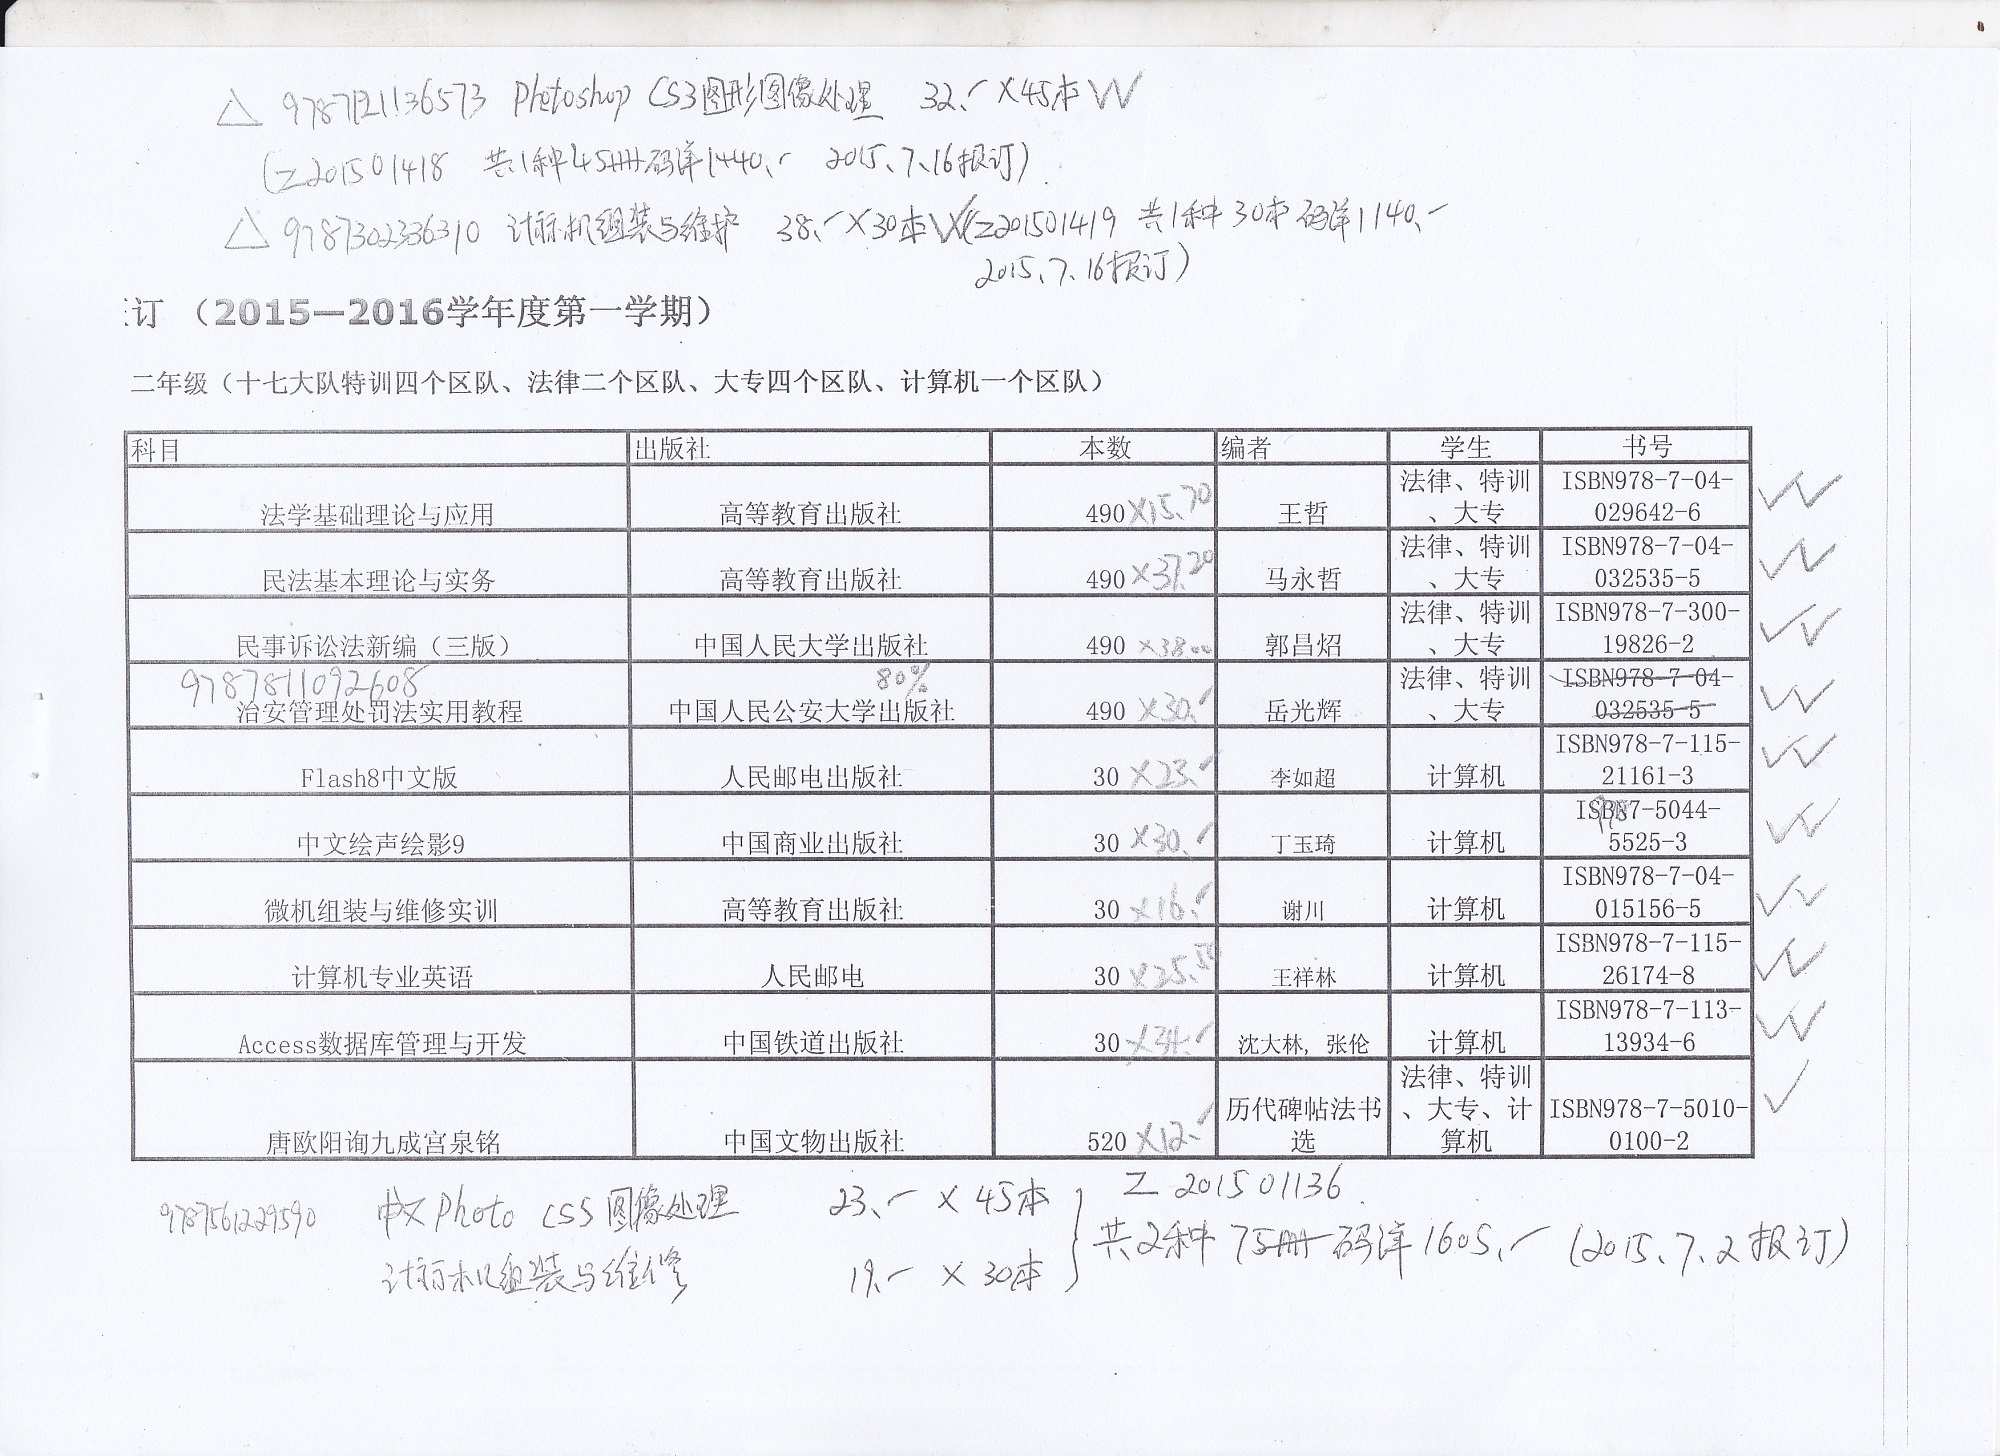 △ 9787121136573 Photoshop CS3图形图像处理 32.- ×45本
(Z201501418 共1种45册码洋1440.- 2015.7.16报订)
△ 9787302336310 计算机组装与维护 38.- ×30本 (Z201501419 共1种30本码洋1140.-
2015.7.16报订)
订 （2015—2016学年度第一学期）
二年级（十七大队特训四个区队、法律二个区队、大专四个区队、计算机一个区队）
科目 出版社 本数 编者 学生 书号
法学基础理论与应用 高等教育出版社 490 ×15.70 王哲 法律、特训、大专 ISBN978-7-04-029642-6
民法基本理论与实务 高等教育出版社 490 ×37.20 马永哲 法律、特训、大专 ISBN978-7-04-032535-5
民事诉讼法新编（三版） 中国人民大学出版社 490 ×38.00 郭昌炤 法律、特训、大专 ISBN978-7-300-19826-2
9787811092608 80%
治安管理处罚法实用教程 中国人民公安大学出版社 490 ×30.- 岳光辉 法律、特训、大专 ISBN978-7-04-032535-5
Flash8中文版 人民邮电出版社 30 ×23.- 李如超 计算机 ISBN978-7-115-21161-3
中文绘声绘影9 中国商业出版社 30 ×30.- 丁玉琦 计算机 ISBN7-5044-5525-3
微机组装与维修实训 高等教育出版社 30 ×16.- 谢川 计算机 ISBN978-7-04-015156-5
计算机专业英语 人民邮电 30 ×25.50 王祥林 计算机 ISBN978-7-115-26174-8
Access数据库管理与开发 中国铁道出版社 30 ×34.- 沈大林, 张伦 计算机 ISBN978-7-113-13934-6
唐欧阳询九成宫泉铭 中国文物出版社 520 ×12.- 历代碑帖法书选 法律、特训、大专、计算机 ISBN978-7-5010-0100-2
9787561229590 中文Photo CS5图像处理 23.- × 45本 Z201501136
计算机组装与维修 19.- × 30本 共2种 75册 码洋1605.- (2015.7.2报订)